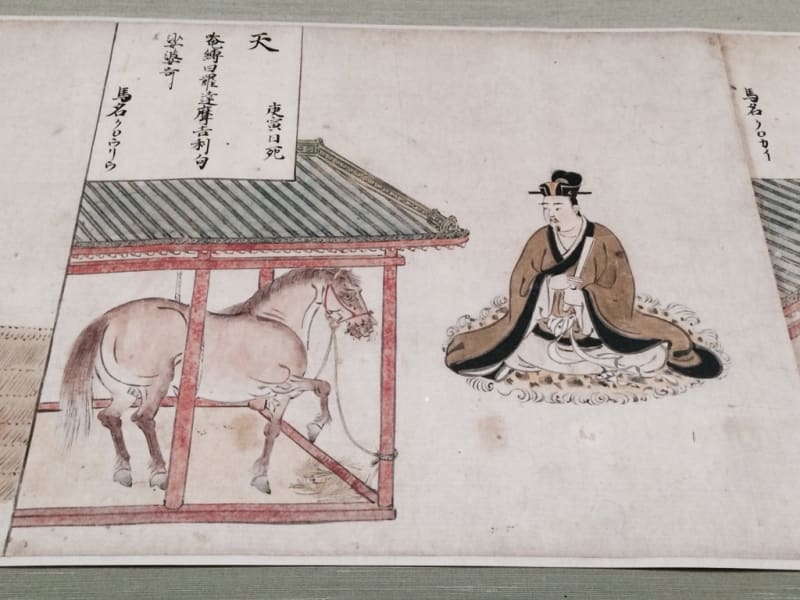 馬名クロカイ
天
庚寅日死
奄縛日羅達摩吉利句
馬名クロウリウ